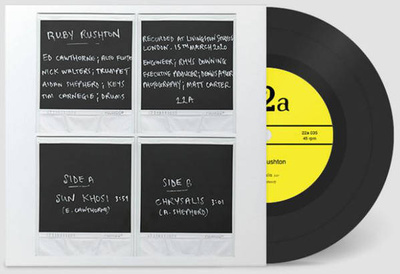 RUBY RUSHTON
ED CAWTHORNE; ALTO FLUTE
NICK WALTERS; TRUMPET
AIDAN SHEPHERD; KEYS
TIM CARNEGIE; DRUMS
RECORDED AT LIVINGSTON STUDIOS
LONDON. 13TH MARCH 2020
ENGINEER; RHYS DOWNING
EXECUTIVE PRODUCER;
PHOTOGRAPHY; MATT CARTER
22A
SIDE A
SUN KHOSI 3:59
(E. CAWTHORNE)
SIDE B
CHRYSALIS 3:01
(A. SHEPHERD)
2a
22a 033
45 rpm
Rushton